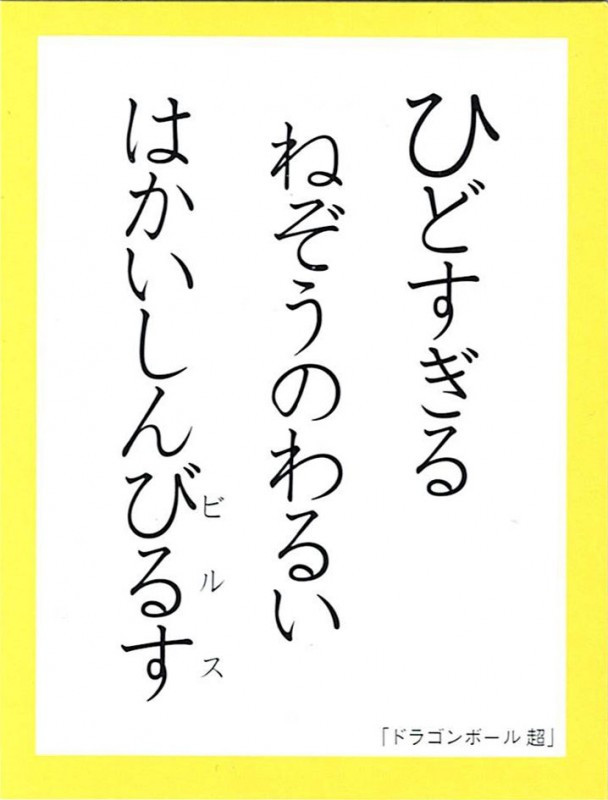 ひどすぎる
ねぞうのわるい
はかいしんびるす
ビルス
「ドラゴンボール 超」